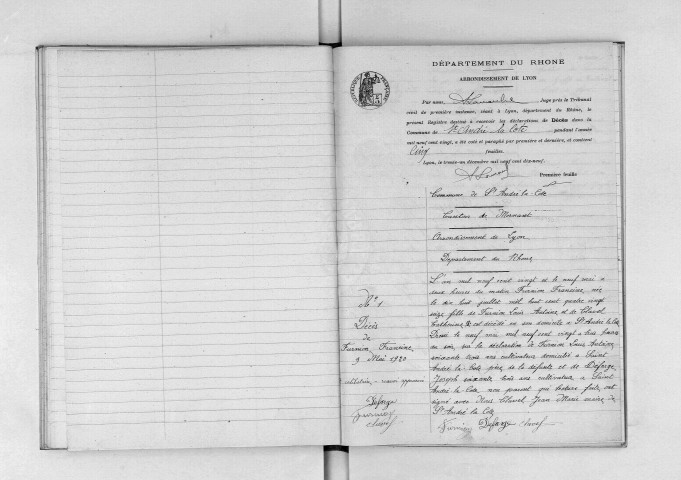 DÉPARTEMENT DU RHONE
ARRONDISSEMENT DE LYON
Par nous, Juge près le Tribunal
civil de première instance, séant à Lyon, département du Rhône, le
présent Registre destiné à recevoir les déclarations de Décès dans la
Commune de St André la Côte pendant l'année
mil neuf cent vingt, a été coté et paraphé par première et dernière, et contient
Cinq feuilles.
Lyon, le trente-un décembre mil neuf cent dix-neuf.
Première feuille
Commune de St André la Côte
Canton de Mornant
Arrondissement de Lyon
Département du Rhône
No 1
Décès
de
Furnion, Francine
9 Mai 1920
Deforge
Furnion
Clavel
L'an mil neuf cent vingt et le neuf mai à
heures du matin Furnion Francine, née
le dix huit juillet mil huit cent quatre vingt
seize fille de Furnion Louis Antoine et de Clavel
Catherine est décédée en son domicile à St André la Côte
Dressé le neuf mai mil neuf cent vingt à heures
du soir, sur la déclaration de Furnion Louis Antoine
soixante trois ans cultivateur domicilié à Saint
André la Côte père de la défunte et de Deforge
Joseph soixante trois ans cultivateur à Saint
André la Côte non parent qui lecture faite, ont
signé avec Nous Clavel Jean Marie maire de
St André la Côte
Furnion Deforge Clavel